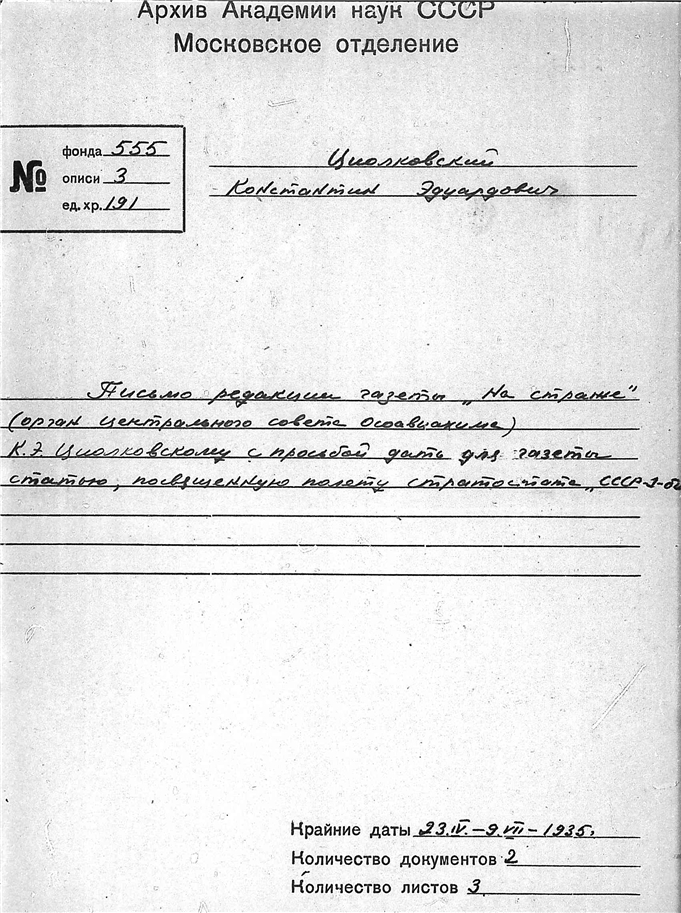 Архив Академии наук СССР
Московское отделение
№
фонда 555
описи 3
ед. хр. 191
Циолковский
Константин Эдуардович
Письмо редакции газеты „На страже"
(орган Центрального совета Осоавиахима)
К.Э. Циолковскому с просьбой дать для газеты
статью, посвященную полету стратостата „СССР-1-
Крайние даты 23.IV.–9.VII–1935.
Количество документов 2
Количество листов 3